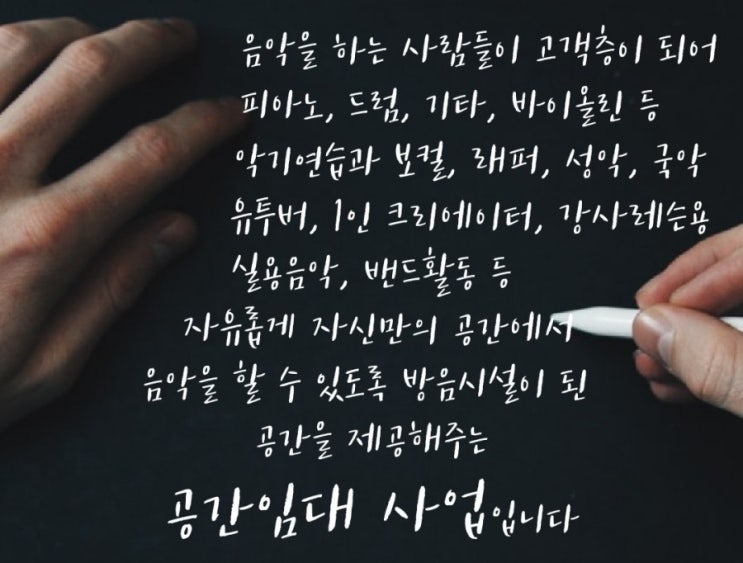 음악을 하는 사람들이 고객층이 되어
피아노, 드럼, 기타, 바이올린 등
악기연습과 보컬, 래퍼, 성악, 국악
유투버, 1인 크리에이터, 강사레슨용
실용음악, 밴드활동 등
자유롭게 자신만의 공간에서
음악을 할 수 있도록 방음시설이 된
공간을 제공해주는
공간임대 사업입니다